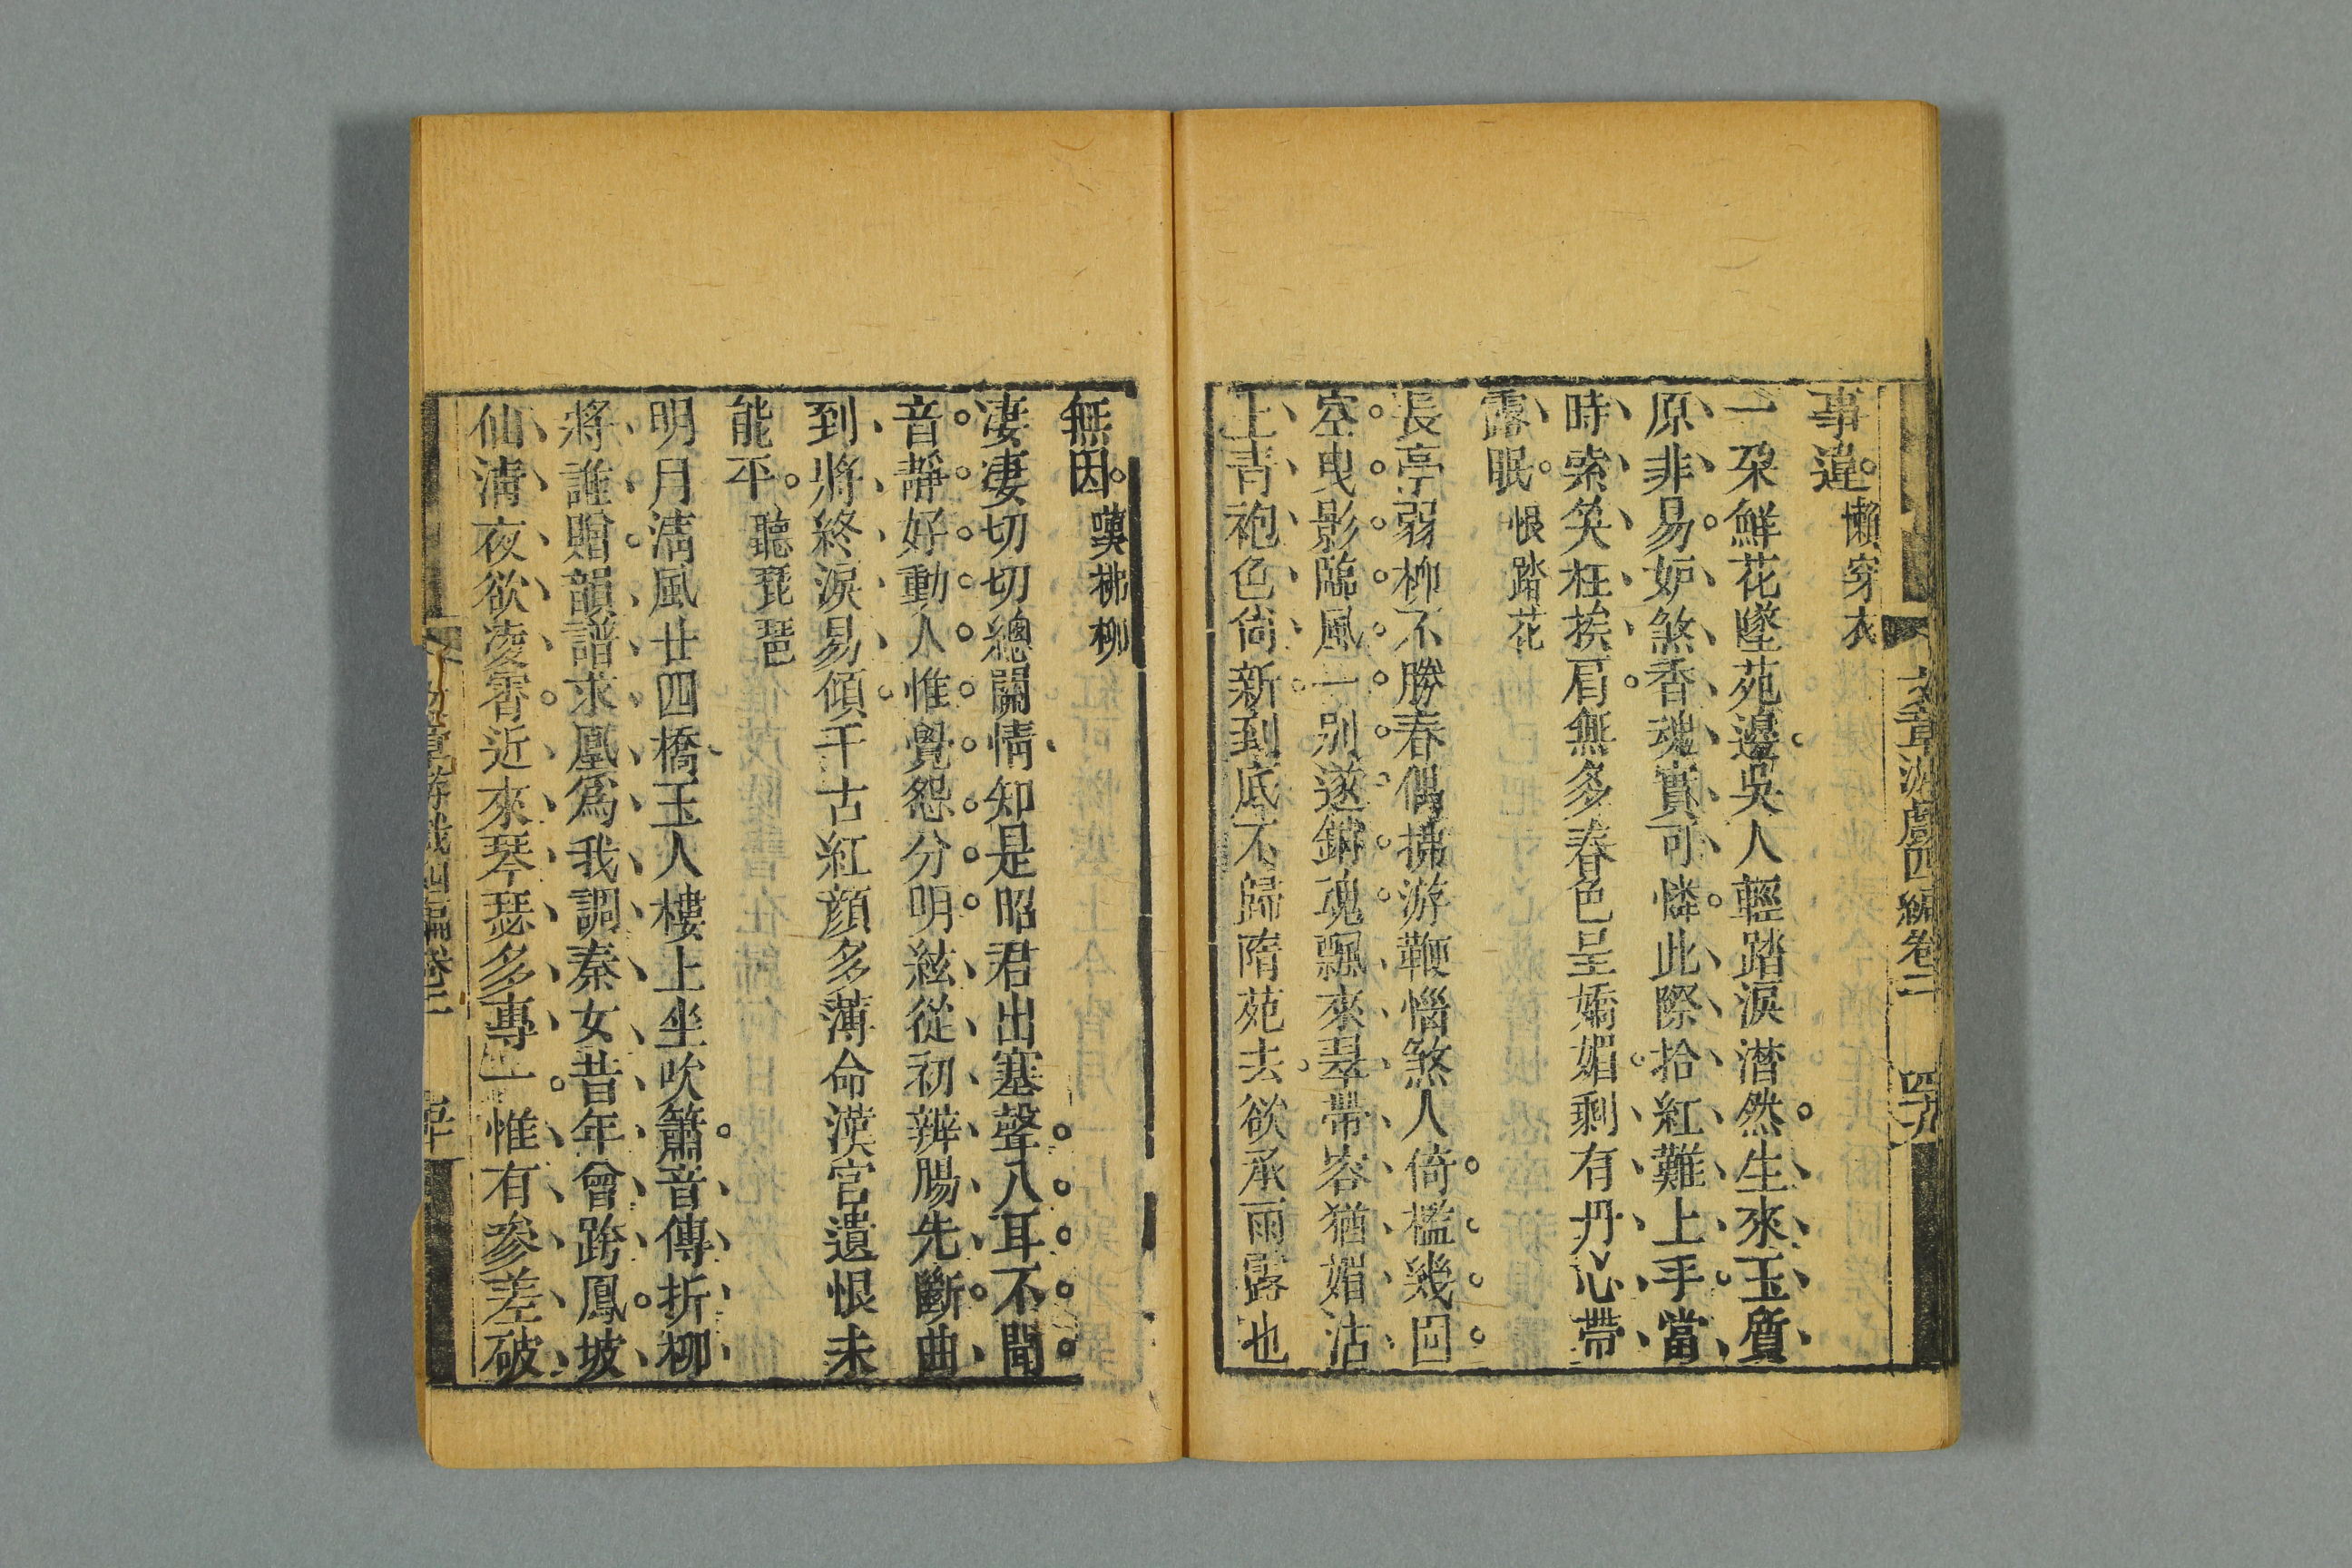 文章游戲四編卷二 四九
事違。懶穿衣
一朶鮮花墜苑邊吳人輕踏淚潸然生來玉質
原非易妒煞香魂實可憐此際拾紅難上手當
時索笑枉挨肩無多春色呈嬌媚剩有丹心帶
露眠。恨踏花
長亭弱柳不勝春偶拂游鞭惱煞人倚檻幾回
空曳影臨風一别遂銷魂飄來翠帶容猶媚沾
上青袍色尙新到底不歸隋苑去欲承雨露也
無因。嘆拂柳
凄凄切切總關情知是昭君出塞聲入耳不聞
音靜好動人惟覺怨分明絃從初辨腸先斷曲
到將終淚易傾千古紅顔多薄命漢宮遺恨未
能平。聽琵琶
明月淸風廿四橋玉人樓上坐吹簫音傳折柳
將誰贈韻譜求凰爲我調秦女昔年曾跨鳳坡
仙淸夜欲凌霄近來琴瑟多專一惟有參差破